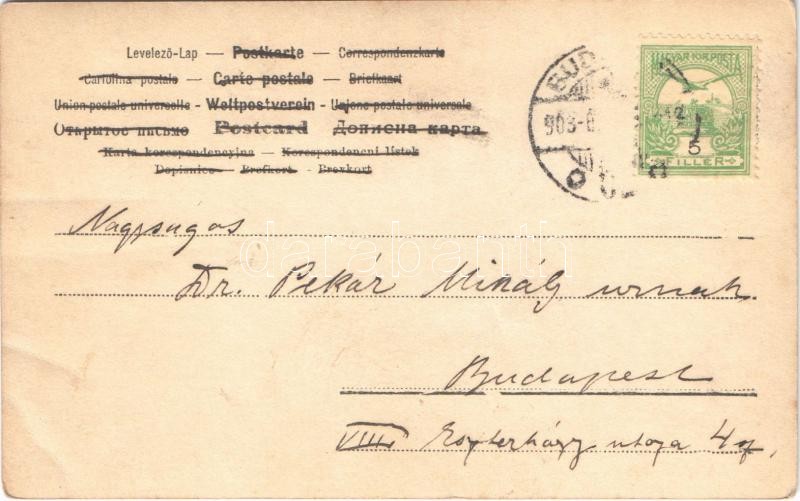 Levelező-Lap — Postkarte — Correspondenzkarte
Cartolina postale — Carte postale — Briefkaart
Union postale universelle - Weltpostverein - Unione postale universale
Открытое письмо Postcard Дописна карта
Karta korespondencyjna — Korespondenční lístek
Dopisnice — Brefkort — Brevkort
MAGYAR KIR. POSTA
5
FILLER
BUD
903
Nagyságos
Dr. Pekár Mihály urnak
Budapest
VIII. Eszterházy utcza 4
darabanth